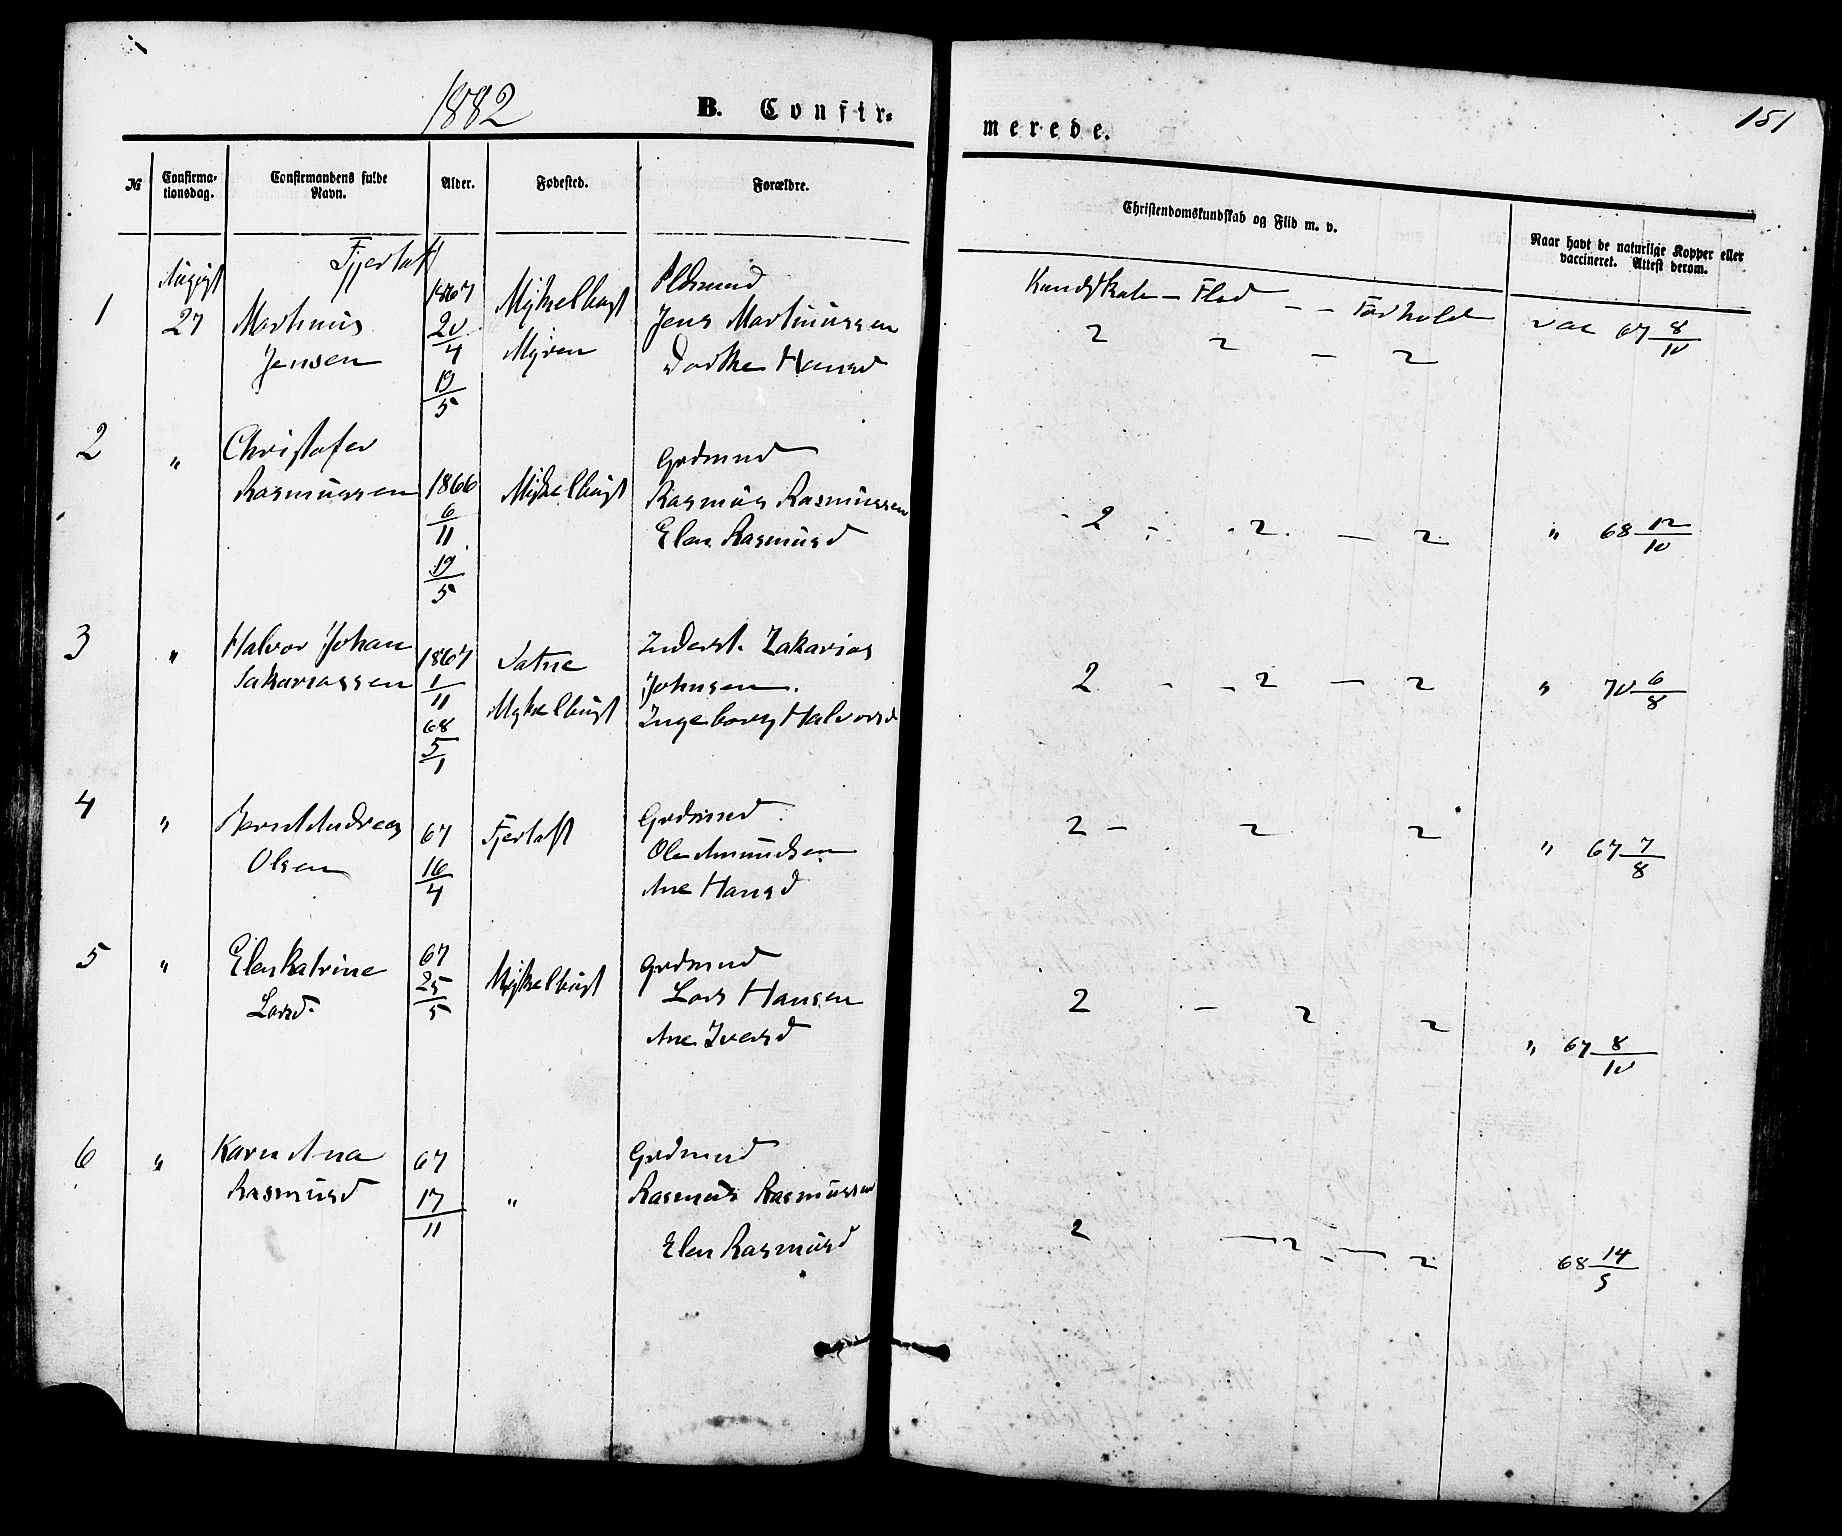 1882
B. Confir-
merede.
151
№
Confirma-
tionsdag.
Confirmandens fulde
Navn.
Alder.
Fødested.
Forældre.
Christendomskundskab og Flid m. v.
Naar havt de naturlige Kopper eller
vaccineret. Attest derom.
Fjertoft
1 August 27 Martinus Jensen 1867 20/4 19/5 Myklebust Myren
Jens Martinussen
Dorthe Hansd
Kundskab – Flid – – Forhold
2 2 – 2
vac 67 8/10
2 " Christofer Rasmussen 1866 6/11 19/5 Myklebust
Grdmnd
Rasmus Rasmussen
Elen Rasmusd
2 – 2 – 2
" 68 12/10
3 " Halvor Johan Sakariassen 1867 1/11 68 5/1 Vatne Myklebust
Inderst. Zakarias
Johnsen.
Ingeborg Halvorsd
2 – – 2 – 2
" 70 6/8
4 " Bernt Andreas Olsen 67 16/4 Fjertoft
Grdmnd
Ole Amundsen
Ane Hansd
2 – 2 2
" 67 7/8
5 " Elen Katrine Larsd. 67 25/5 Myklebust
Grdmnd
Lars Hansen
Ane Iversd
2 – 2 2
" 67 8/10
6 " Karen Ana Rasmusd 67 17/11 "
Grdmnd
Rasmus Rasmussen
Elen Rasmusd
2 – 2 – – 2
68 14/5